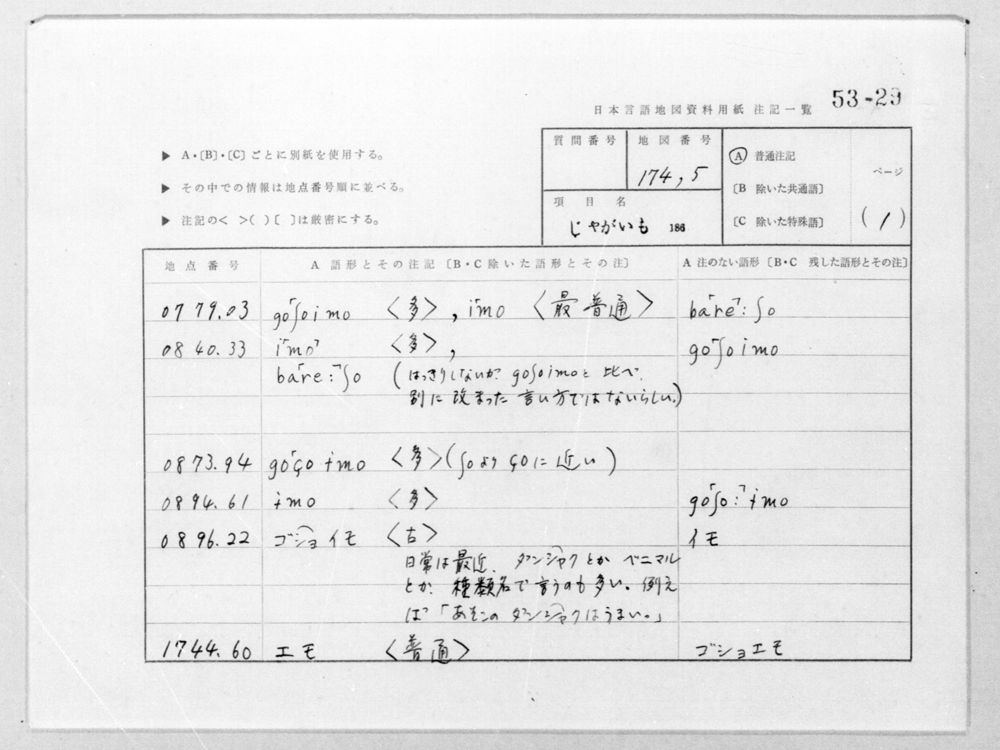 53-29
日本言語地図資料用紙 注記一覧
▶ A・〔B〕・〔C〕ごとに別紙を使用する。
▶ その中での情報は地点番号順に並べる。
▶ 注記の< >( )〔 〕は厳密にする。
質問番号
地図番号
174,5
項目名
じゃがいも 186
Ⓐ 普通注記
〔B 除いた共通語〕
〔C 除いた特殊語〕
ページ
(1)
地点番号 A 語形とその注記〔B・C除いた語形とその注〕 A 注のない語形〔B・C 残した語形とその注〕
0779.03 go「ʃoimo 〈多〉, i「mo 〈最普通〉 ba「re」:ʃo
0840.33 i「mo」 〈多〉, go「ʃoimo
ba「re:」ʃo (はっきりしないが goʃoimoと比べ、
別に改まった言い方ではないらしい。)
0873.94 go「çoɨmo 〈多〉(ʃoよりçoに近い)
0894.61 ɨmo 〈多〉 go「ʃo:」ɨmo
0896.22 ゴショイモ 〈古〉 イモ
日常は最近、ダンシャクとか ベニマル
とか、種類名で言うのも多い。例え
ば「あそこの ダンシャクはうまい。」
1744.60 エモ 〈普通〉 ゴショエモ